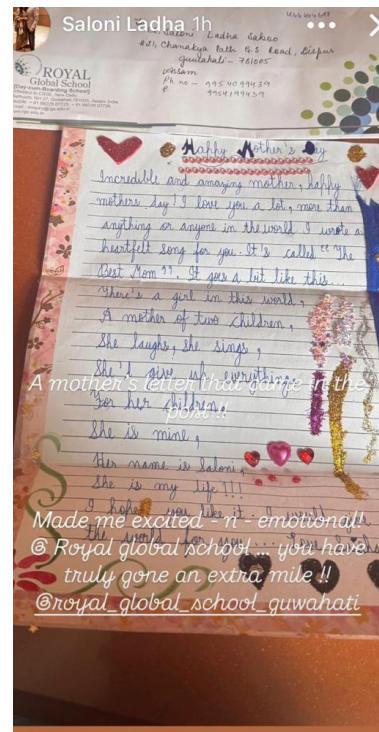 Saloni Ladha 1h
Saloni Ladha Saboo
#21, Chanakya Path G.S Road, Dispur
Guwahati - 781005
Assam
Ph no -
ROYAL
Global School
[Day-cum-Boarding School]
Happy Mother's Day
Incredible and amazing mother, happy
mothers day! I love you a lot, more than
anything or anyone in the world I wrote a
heartfelt song for you. It's called "The
Best Mom". It goes a bit like this...
There's a girl in this world,
A mother of two children,
She laughs, she sings,
She'd give up everything,
For her children,
She is mine,
Her name is Saloni,
She is my life!!!
I hope you like it. I would
the world for you... Love
A mother's letter that came in the
post!!
Made me excited - n - emotional!!
@ Royal global school ... you have
truly gone an extra mile !!
@royal_global_school_guwahati